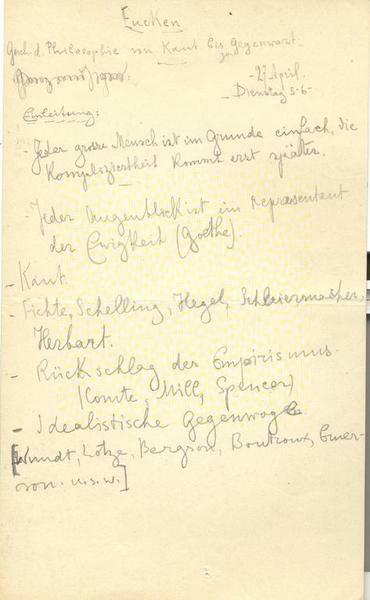 Eucken
Gesch. d. Philosophie von Kant bis zur Gegenwart.
- 27 April.
Dienstag 5-6-
Einleitung:
- Jeder grosse Mensch ist im Grunde einfach, die
Kompliziertheit kommt erst später.
- Jeder Augenblick ist ein Representant
der Ewigkeit (Goethe).
- Kant.
- Fichte, Schelling, Hegel, Schleiermacher,
Herbart.
- Rückschlag der Empirismus.
(Comte, Mill, Spencer)
- Idealistische Gegenwoge
[Wundt, Lotze, Bergson, Boutroux, Emer-
son. u.s.w.]